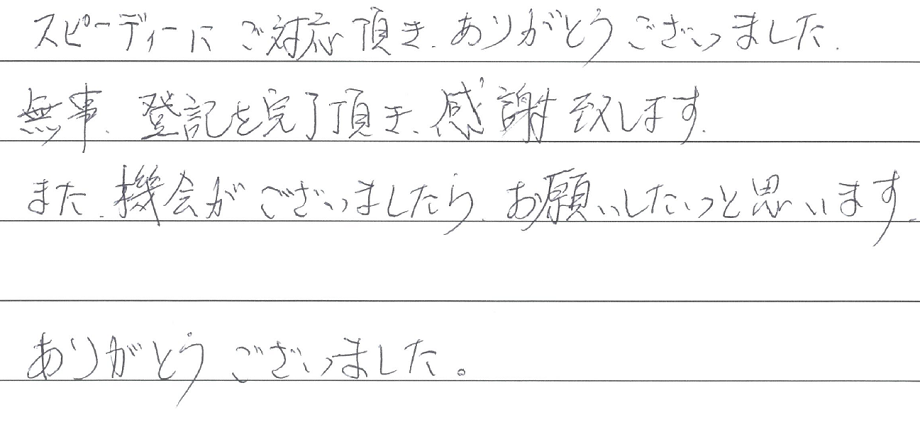 スピーディーにご対応頂き、ありがとうございました。
無事、登記を完了頂き、感謝致します。
また、機会がございましたら、お願いしたいと思います。
ありがとうございました。